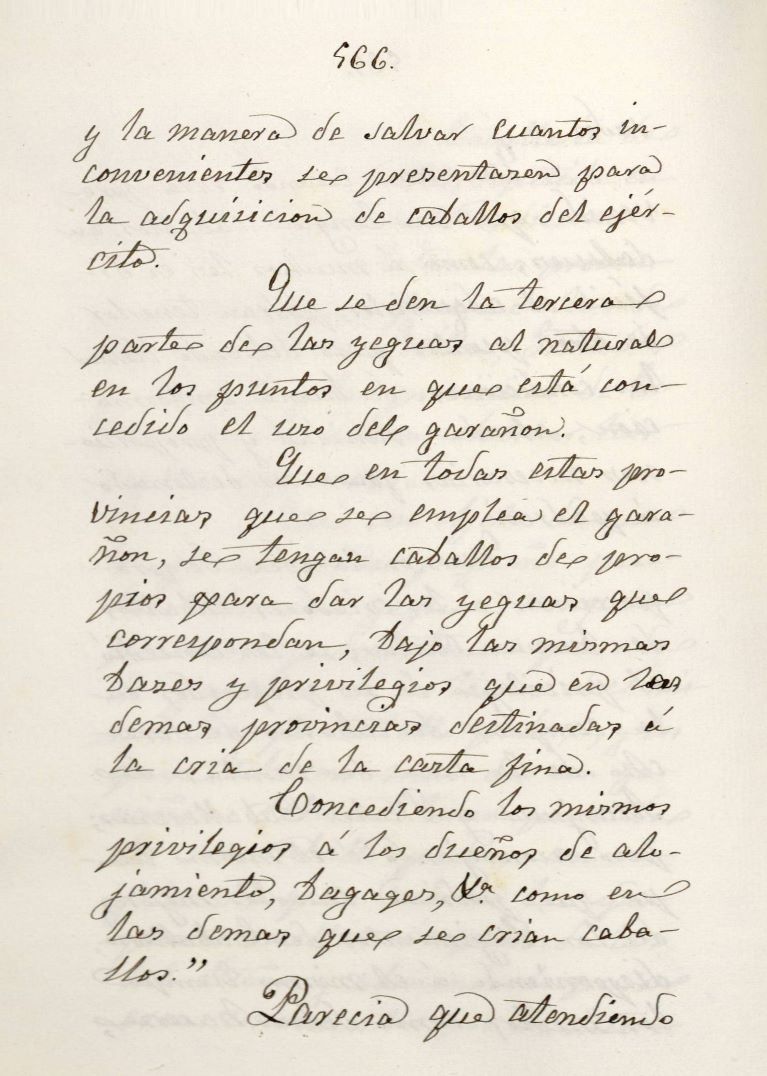 566.
y la manera de salvar cuantos in-
convenientes se presentasen para
la adquisicion de caballos del ejér-
cito.
Que se den la tercera
parte de las yeguas al natural
en los puntos en que está con-
cedido el uso del garañon.
Que en todas estas pro-
vincias que se emplea el gara-
ñon, se tengan caballos de pro-
pios para dar las yeguas que
correspondan, bajo las mismas
bases y privilegios que en las
demas provincias destinadas á
la cria de la casta fina.
Concediendo los mismos
privilegios á los dueños de alo-
jamiento, bagages, &ª como en
las demas que se crian caba-
llos."
Parecia que atendiendo